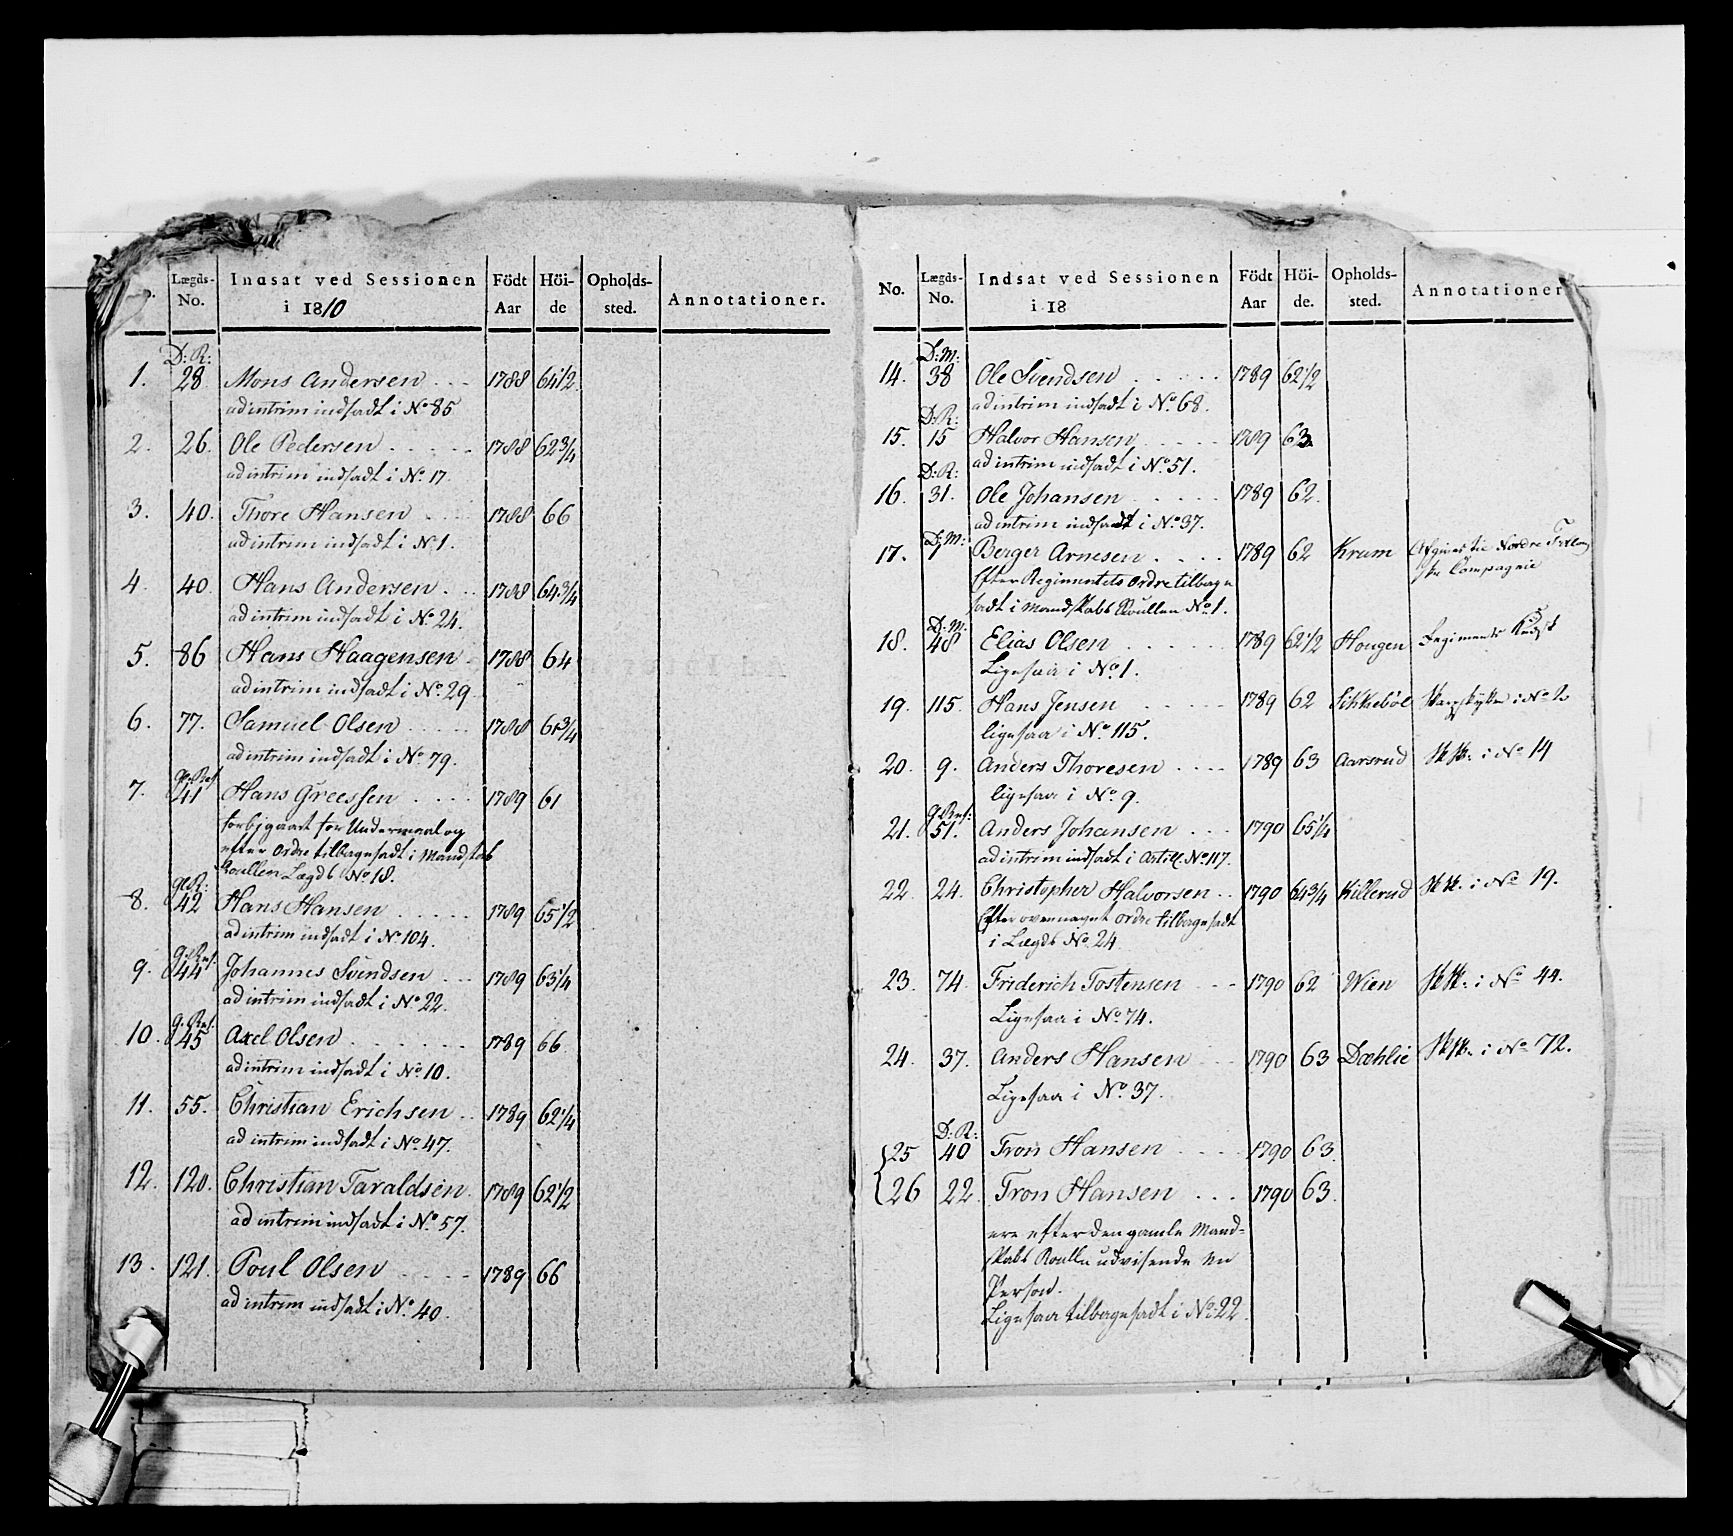 Lægds- Indsat ved Sessionen Födt Höi- Opholds- Annotationer.
No. i 1810 Aar de sted.
D: R:
1. 28. Mons Andersen 1788 64 1/2
ad intrim indsadt i No 85
2. 26. Ole Pedersen 1788 62 3/4
ad intrim indsadt i No 17.
3. 40. Thore Hansen 1788 66
ad intrim indsadt i No 1.
4. 40. Hans Andersen 1788 64 3/4
ad intrim indsadt i No 24.
5. 86 Hans Haagensen 1788 64
ad intrim indsadt i No 29
6. 77. Samuel Olsen 1788 61 3/4
ad intrim indsadt i No 79.
7. 41 Hans Greessen 1789 61
forbigaaet for Undermaal og
efter Ordre tilbagesadt i Mandskab
Roullen Lægds No 18.
8. 42 Hans Hansen 1789 65 1/2
ad intrim indsadt i No 104.
9. 44 Johannes Svendsen 1789 63 1/4
ad intrim indsadt i No 22
10. 45 Axel Olsen 1789 66
ad intrim indsadt i No 10.
11. 55. Christian Erichsen 1789 62 1/4
ad intrim indsadt i No 47.
12. 120. Christian Taraldsen 1789 62 1/2
ad intrim indsadt i No 57.
13. 121. Poul Olsen 1789 66
ad intrim indsadt i No 40.
No. Lægds- Indsat ved Sessionen Födt Höi- Opholds- Annotationer
No. i 18 Aar de. sted.
D: M:
14. 38 Ole Svendsen 1789 62 1/2
ad intrim indsadt i No 68.
D: R:
15. 15 Halvor Hansen 1789 63
ad intrim indsadt i No 51.
D: R:
16. 31. Ole Johansen 1789 62.
ad intrim indsadt i No 37.
D: M:
17. 1 Berger Arnesen 1789 62 Krum Afgiver til Nordre
Compagnie
Efter Regimentets Ordre tilbage
sadt i Mandskabs Roullen No 1.
D: M:
18. 48 Elias Olsen 1789 62 1/2 Hougen Regiments
Ligesaa i No 1.
19. 115. Hans Jensen 1789 62 Sikkebøl Skarpskytter i No 2
ligesaa i No 115.
20. 9. Anders Thoresen 1789 63 Aarsrud i No 14
ligesaa i No 9.
21. 51. Anders Johansen 1790 65 1/4
ad intrim indsadt i Artill. No 117.
22. 24. Christopher Halvorsen 1790 64 3/4 Killerud i No 19.
Efter ovennævnt Ordre tilbagesadt
i Lægds No 24
23. 74. Friderich Tostensen 1790 62 Wien i No 44.
Ligesaa i No 74.
24. 37. Anders Hansen 1790 63 Dæhlie i No 72.
Ligesaa i No 37.
D: R:
25 40 Tron Hansen 1790 63.
26 22. Tron Hansen 1790 63.
ere efter den gamle Mand-
skabs Roulle udvisende en
Person.
Ligesaa tilbagesadt i No 22.